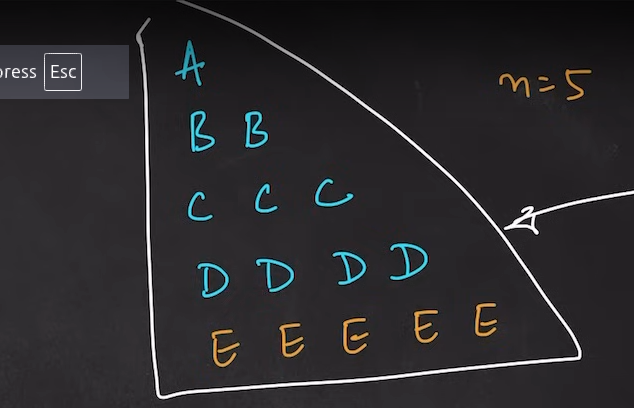 press Esc
A
n=5
B B
C C C
D D D D
E E E E E